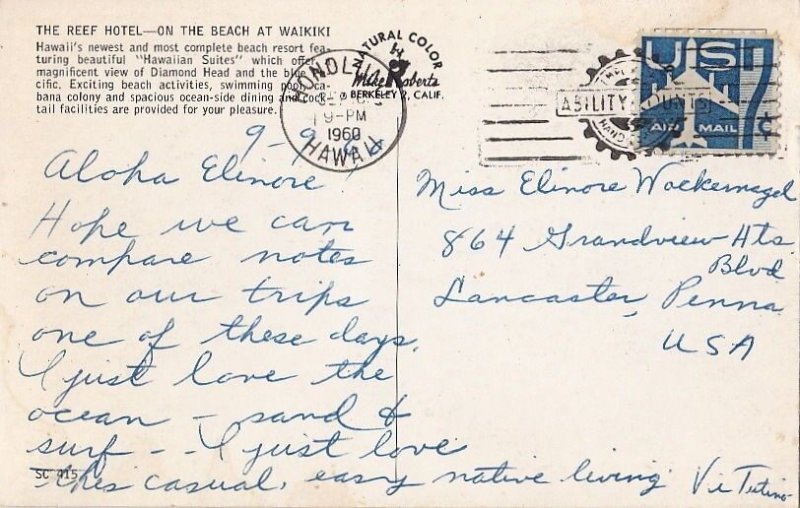 THE REEF HOTEL—ON THE BEACH AT WAIKIKI
Hawaii's newest and most complete beach resort fea-
turing beautiful "Hawaiian Suites" which offer
magnificent view of Diamond Head and the blue
cific. Exciting beach activities, swimming pool, ca-
bana colony and spacious ocean-side dining and cock-
tail facilities are provided for your pleasure.
NATURAL COLOR
by
Mike Roberts
BERKELEY 2, CALIF.
HONOLULU
9-PM
1960
HAWAII
ABILITY COUNTS
US
7¢
AIR MAIL
9-9-60
Aloha Elinore
Hope we can
compare notes
on our trips
one of these days.
I just love the
ocean - sand &
surf - - I just love
this casual, easy native living Vi
SC 415
Miss Elinore Wockernagel
864 Grandview Hts
Blvd
Lancaster, Penna
USA